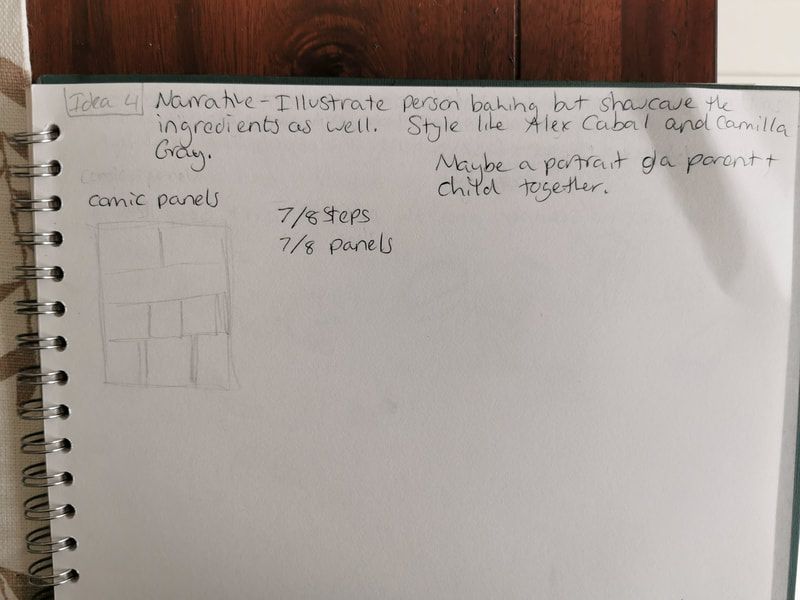 Idea 4 Narrative - Illustrate person baking but showcase the
ingredients as well. Style like Alex Cabal and Camilla
Gray.
Maybe a portrait of a parent +
child together.
comic panels
7/8 steps
7/8 panels